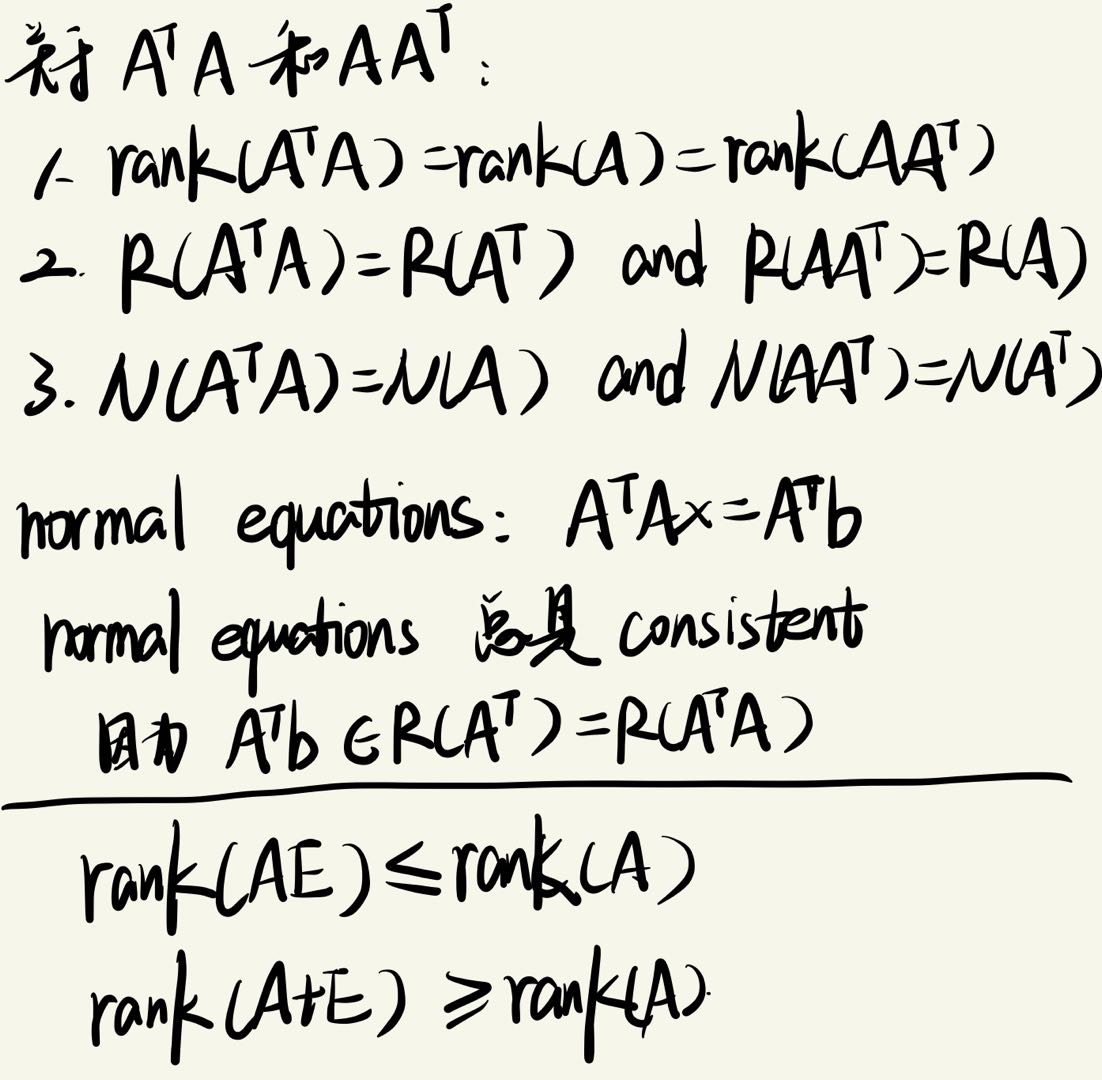 关于 AᵀA 和 AAᵀ:
1. rank(AᵀA)=rank(A)=rank(AAᵀ)
2. R(AᵀA)=R(Aᵀ) and R(AAᵀ)=R(A)
3. N(AᵀA)=N(A) and N(AAᵀ)=N(Aᵀ)
normal equations: AᵀAx=Aᵀb
normal equations 总是 consistent
因为 Aᵀb∈R(Aᵀ)=R(AᵀA)
rank(AE)≤rank(A)
rank(A+E)≥rank(A).